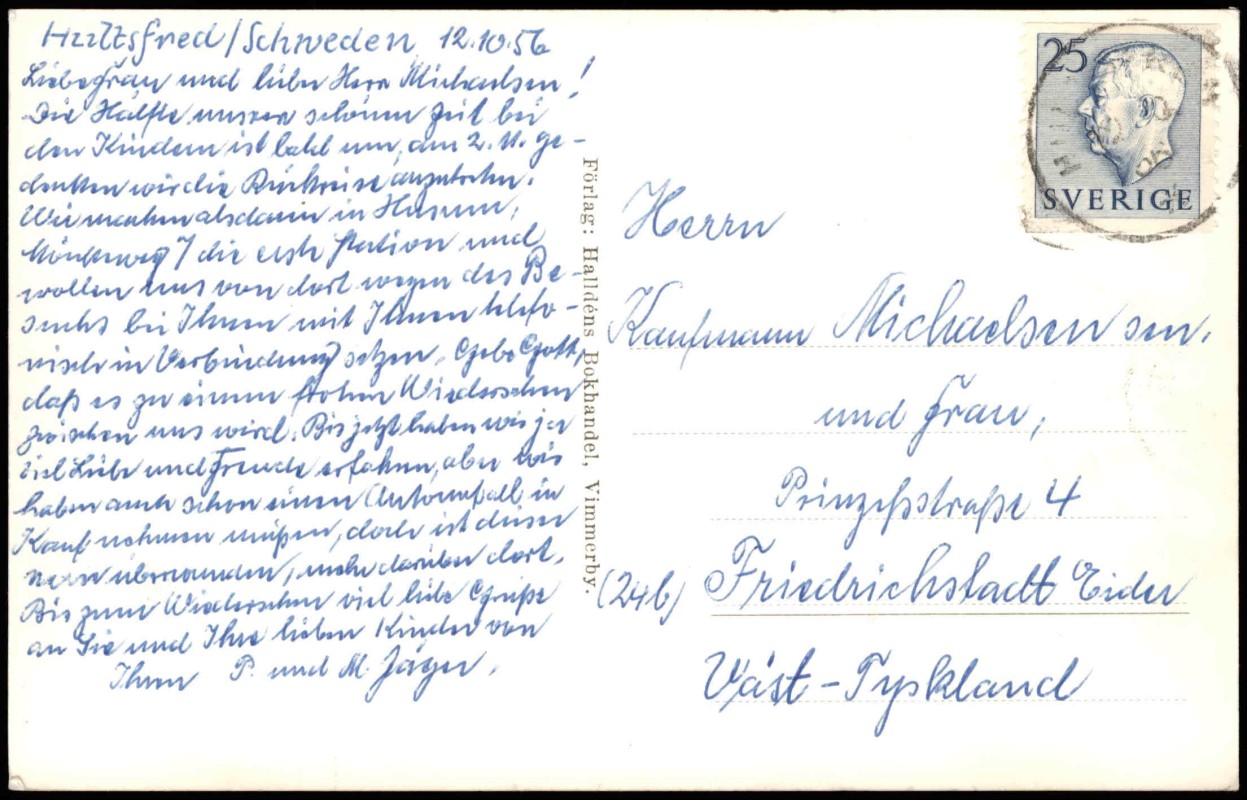 Hultsfred/Schweden 12.10.56
Liebe Frau und lieber Herr Michaelsen!
Die Hälfte unserer schönen Zeit bei
den Kindern ist bald um, am 2. 11. ge-
denken wir die Rückreise anzutreten.
Wir machen alsdann in Husum,
Mönkeweg 7 die erste Station und
wollen uns von dort wegen des Be-
suchs bei Ihnen mit Ihnen telefo-
nisch in Verbindung setzen. Gebe Gott,
daß es zu einem frohen Wiedersehen
zwischen uns wird. Bis jetzt haben wir ja
viel Liebe und Freude erfahren, aber wir
haben auch schon einen Autounfall in
Kauf nehmen müßen, doch ist dieser
nun überwunden, mehr darüber dort.
Bis zum Wiedersehen viel liebe Grüße
an Sie und Ihre lieben Kinder von
Ihren P. und M. Jäger.
Förlag: Halldéns Bokhandel, Vimmerby.
25
SVERIGE
Herrn
Kaufmann Michaelsen sen.
und Frau,
Prinzeßstraße 4
(24b) Friedrichstadt Eider
Väst-Tyskland